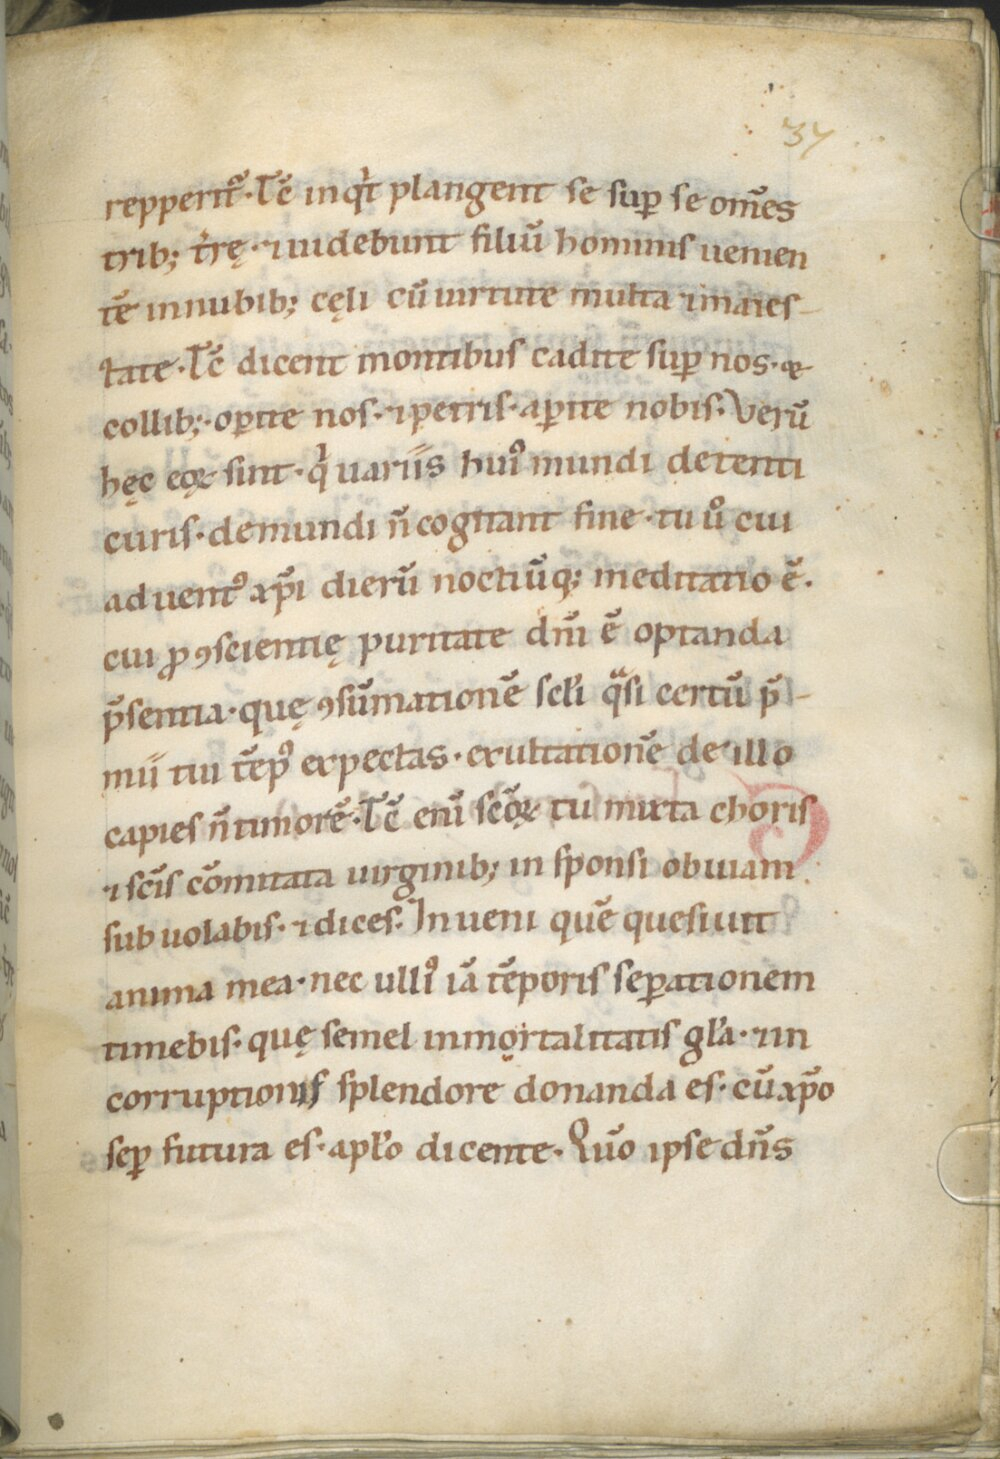 37
repperit᷑·Tc̄ inqͥt plangent se suꝑ se om̄es
trib; tr̄ę·⁊uidebunt filiū hominis uenien
tē innubib; cęli cū uirtute multa ⁊maies-
tate·Tc̄ dicent montibus cadite suꝑ nos·&
collib;·oꝑite nos·⁊petris·aꝑite nobis·Verū
hęc eoꝝ sunt·qͥ uariis huiꝰ mundi detenti
curis·demundi n̄ cogitant fine·tu ū cui
aduentꝰ xp̄i dierū noctiūq; meditatio ē·
cui ꝓ ꝯscientię puritate dn̄i ē optanda
p̄sentia·quę ꝯsūmationē scl̄i qᷓsi certū p̄-
mii tui tēpꝰ expectas·exultationē de illo
capies n̄ timorē·Tc̄ eni̅ sc̄oꝝ tu mixta choris
⁊ sc̄is cōmitata uirginib; in sponsi obuiam
sub uolabis·⁊dices·Inueni quē quesiuit
anima mea·nec ulliꝰ iā tēporis seꝑationem
timebis·quę semel inmortalitatis gl̄a·⁊in
corruptionis splendore donanda es·cū xp̄o
seꝑ futura es·apl̄o dicente·Quō ipse dn̄s